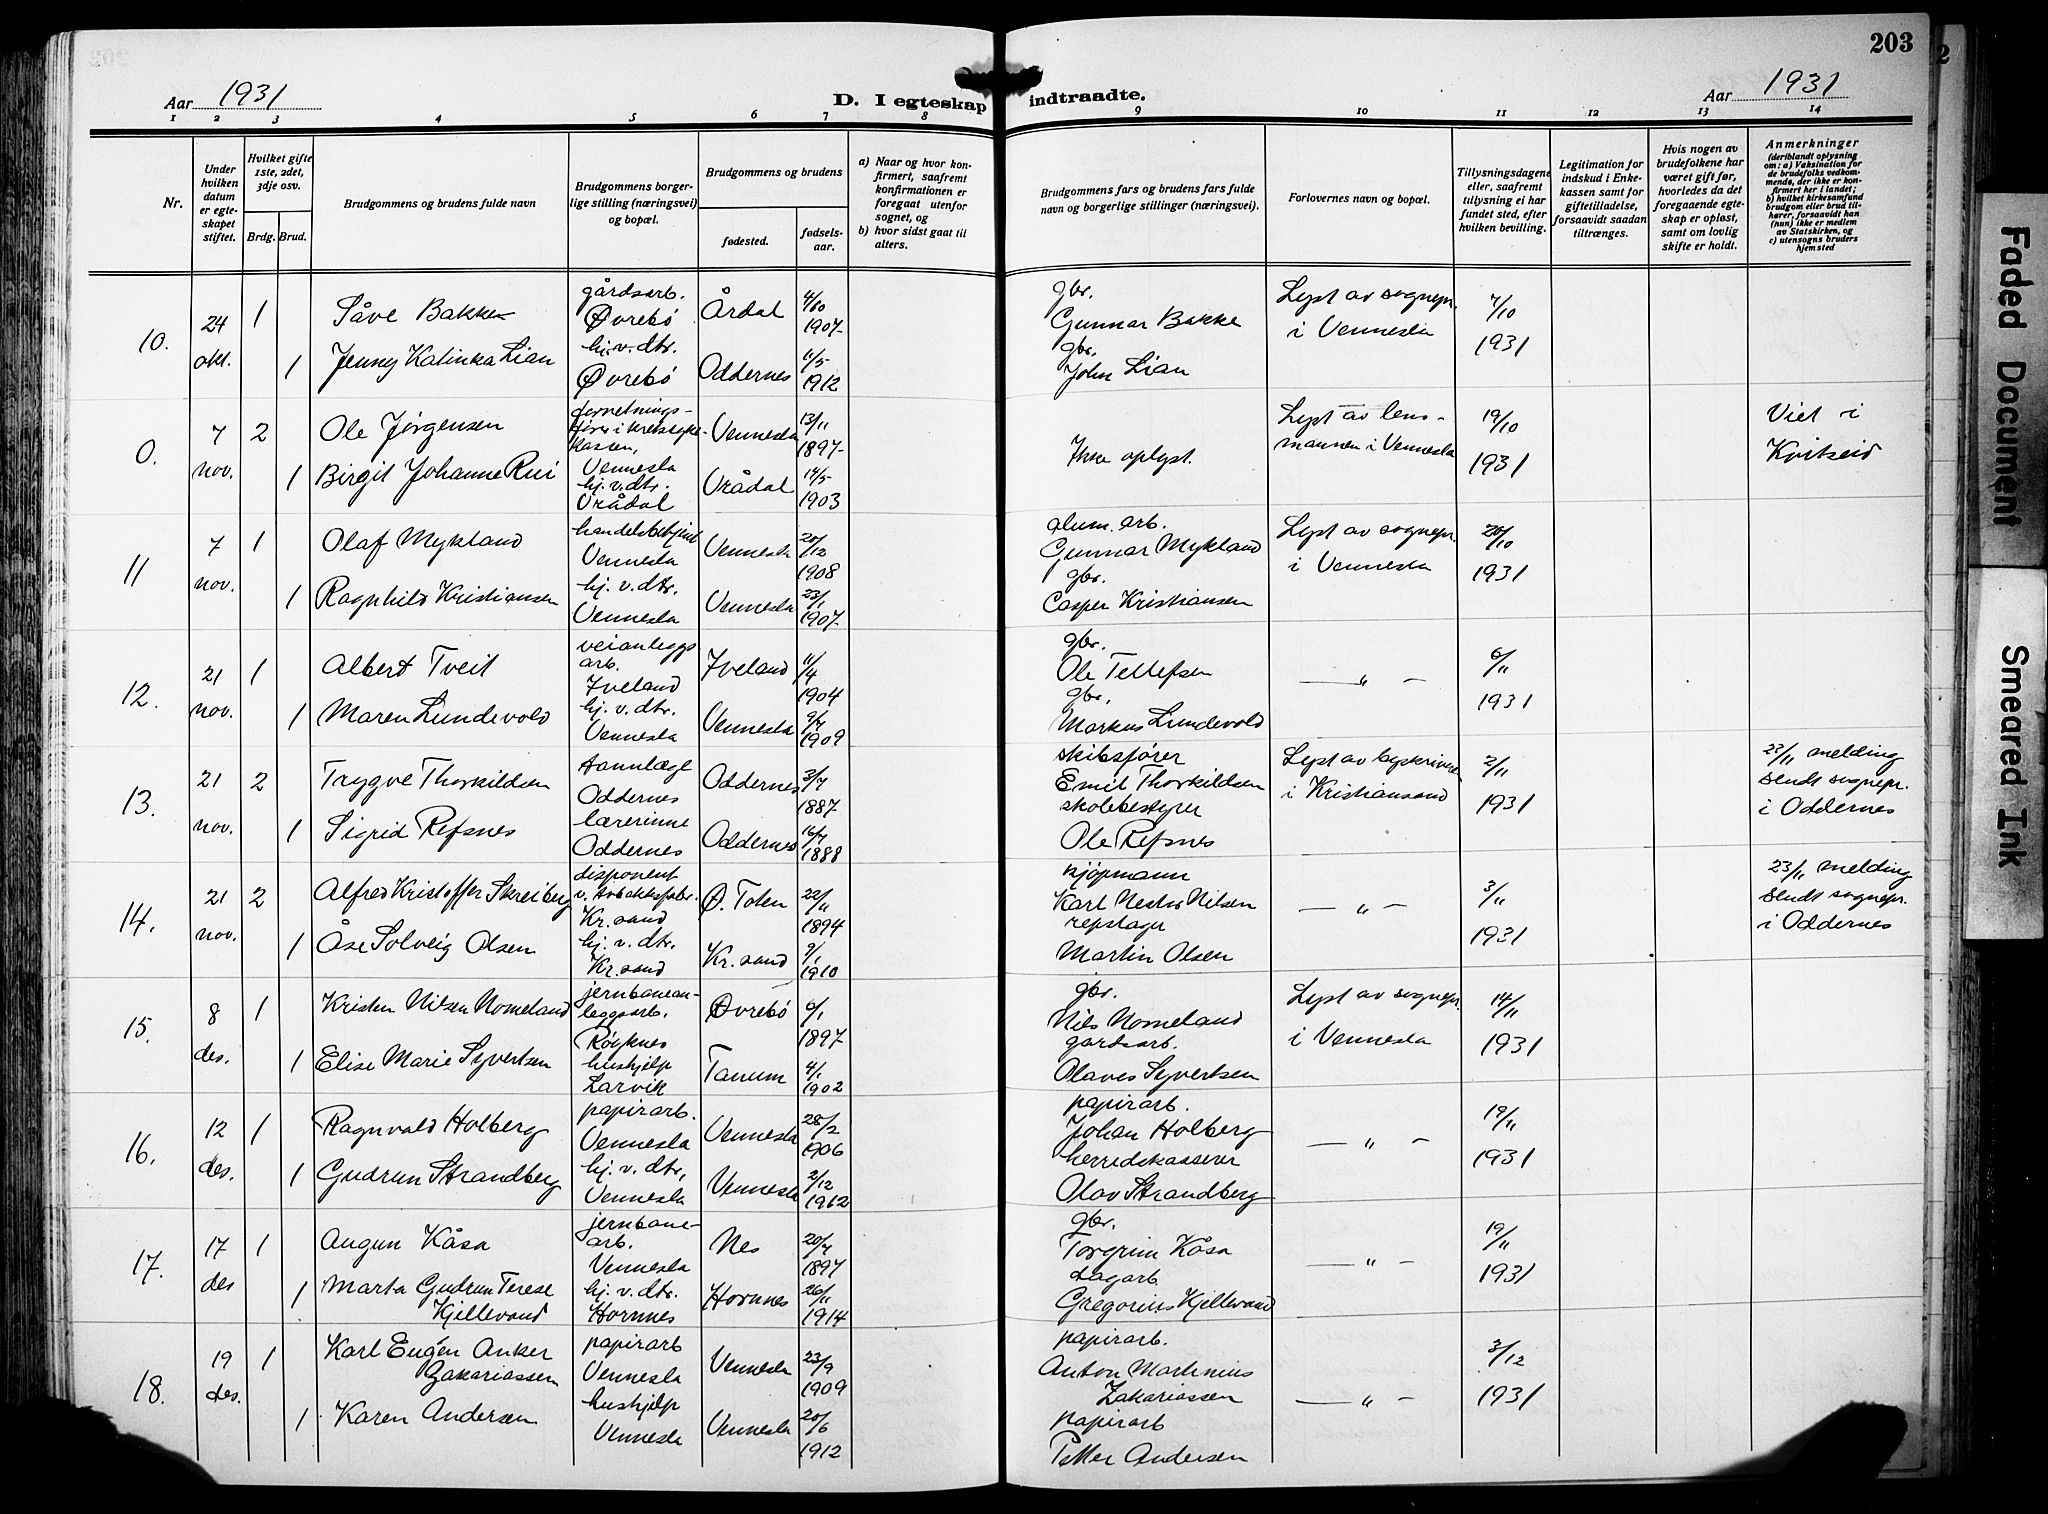 203
Aar 1931
D. I egteskap indtraadte.
Aar 1931
1 2 3 4 5 6 7 8 9 10 11 12 13 14
Nr.
Under hvilken datum er egteskapet stiftet.
Hvilket gifte 1ste, 2det, 3dje osv.
Brdg. Brud.
Brudgommens og brudens fulde navn
Brudgommens borgerlige stilling (næringsvei) og bopæl.
Brudgommens og brudens
fødested.
fødselsaar.
a) Naar og hvor konfirmert, saafremt konfirmationen er foregaat utenfor sognet, og
b) hvor sidst gaat til alters.
Brudgommens fars og brudens fars fulde navn og borgerlige stillinger (næringsvei).
Forlovernes navn og bopæl.
Tillysningsdagene eller, saafremt tillysning ei har fundet sted, efter hvilken bevilling.
Legitimation for indskud i Enkekassen samt for giftetilladelse, forsaavidt saadan tiltrænges.
Hvis nogen av brudefolkene har været gift før, hvorledes da det foregaaende egteskap er opløst, samt om lovlig skifte er holdt.
Anmerkninger
(deriblandt oplysning om: a) Vaksination for de brudefolks vedkommende, der ikke er konfirmert her i landet; b) hvilket kirkesamfund brudgom eller brud tilhører, forsaavidt han (hun) ikke er medlem av Statskirken, og c) utensogns bruders hjemsted
10. 24 okt. 1 Såve Bakke gårdsarb. Øvrebö Årdal 4/10 1907 gbr. Gunnar Bakke Lyst av sognepr. i Vennesla 7/10 1931
1 Jenny Katinka Lian hj. v. dtr. Øvrebö Oddernes 11/5 1912 gbr. John Lian
0. 7 nov. 2 Ole Jørgensen Vennesla Vennesla 13/11 1897 Ikke oplyst. Lyst av lensmannen i Vennesla 19/10 1931 Viet i Kvitseid
1 Birgit Johanne Rui hj. v. dtr. Vrådal Vrådal 14/5 1903
11 7 nov. 1 Olaf Mykland handelsbetjent Vennesla Vennesla 20/12 1908 alum. arb. Gunnar Mykland Lyst av sognepr. i Vennesla 20/10 1931
1 Ragnhild Kristiansen hj. v. dtr. Vennesla Vennesla 23/1 1907 gbr. Casper Kristiansen
12. 21 nov. 1 Albert Tveit veianleggsarb. Iveland Iveland 11/4 1904 gbr. Ole Tellefsen — „ — 6/11 1931
1 Maren Lundevold hj. v. dtr. Vennesla Vennesla 9/7 1909 gbr. Markus Lundevold
13. 21 nov. 2 Trygve Thorkildsen tannlæge Oddernes Oddernes 3/7 1887 skibsfører Emil Thorkildsen Lyst av byskriveren i Kristiansand 2/11 1931 23/11 melding sendt sognepr. i Oddernes
1 Sigrid Refsnes lærerinne Oddernes Oddernes 16/7 1888 skolebestyrer Ole Refsnes
14. 21 nov. 2 Alfred Kristoffer Skreiberg disponent v. tobakksfabr. Kr.sand Ø. Toten 22/11 1894 kjøpmann Karl Nestor Nilsen — „ — 3/11 1931 23/11 melding sendt sognepr. i Oddernes
1 Åse Solveig Olsen hj. v. dtr. Kr.sand Kr.sand 9/1 1910 repslager Martin Olsen
15. 8 des. 1 Kristen Nilsen Nomeland jernbaneanleggsarb. Röyknes Øvrebö 6/1 1897 gbr. Nils Nomeland Lyst av sognepr. i Vennesla 14/11 1931
1 Elise Marie Syvertsen hushjelp Larvik Tanum 4/1 1902 gårdsarb. Olaves Syvertsen
16. 12 des. 1 Ragnvald Holberg papirarb. Vennesla Vennesla 28/2 1906 papirarb. Johan Holberg — „ — 19/11 1931
1 Gudrun Strandberg hj. v. dtr. Vennesla Vennesla 2/12 1912 herredskasserer Olav Strandberg
17. 17 des 1 Augun Kåsa jernbanearb. Vennesla Nes 20/7 1897 gbr. Torgrim Kåsa — „ — 19/11 1931
1 Marta Gudrun Terese Kjellevand hj. v. dtr. Hornnes Hornnes 26/11 1914 dagarb. Gregorius Kjellevand
18. 19 des. 1 Karl Eugén Anker Zakariassen papirarb Vennesla Vennesla 23/9 1909 papirarb. Anton Martinius Zakariassen — „ — 3/12 1931
1 Karen Andersen hushjelp Vennesla Vennesla 20/6 1912 papirarb Petter Andersen
Faded Document
Smeared Ink